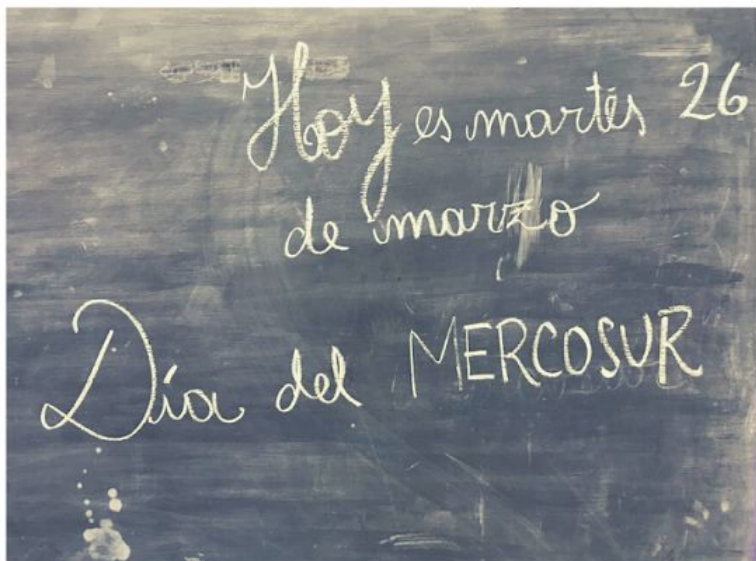 Hoy es martes 26
de marzo
Día del MERCOSUR